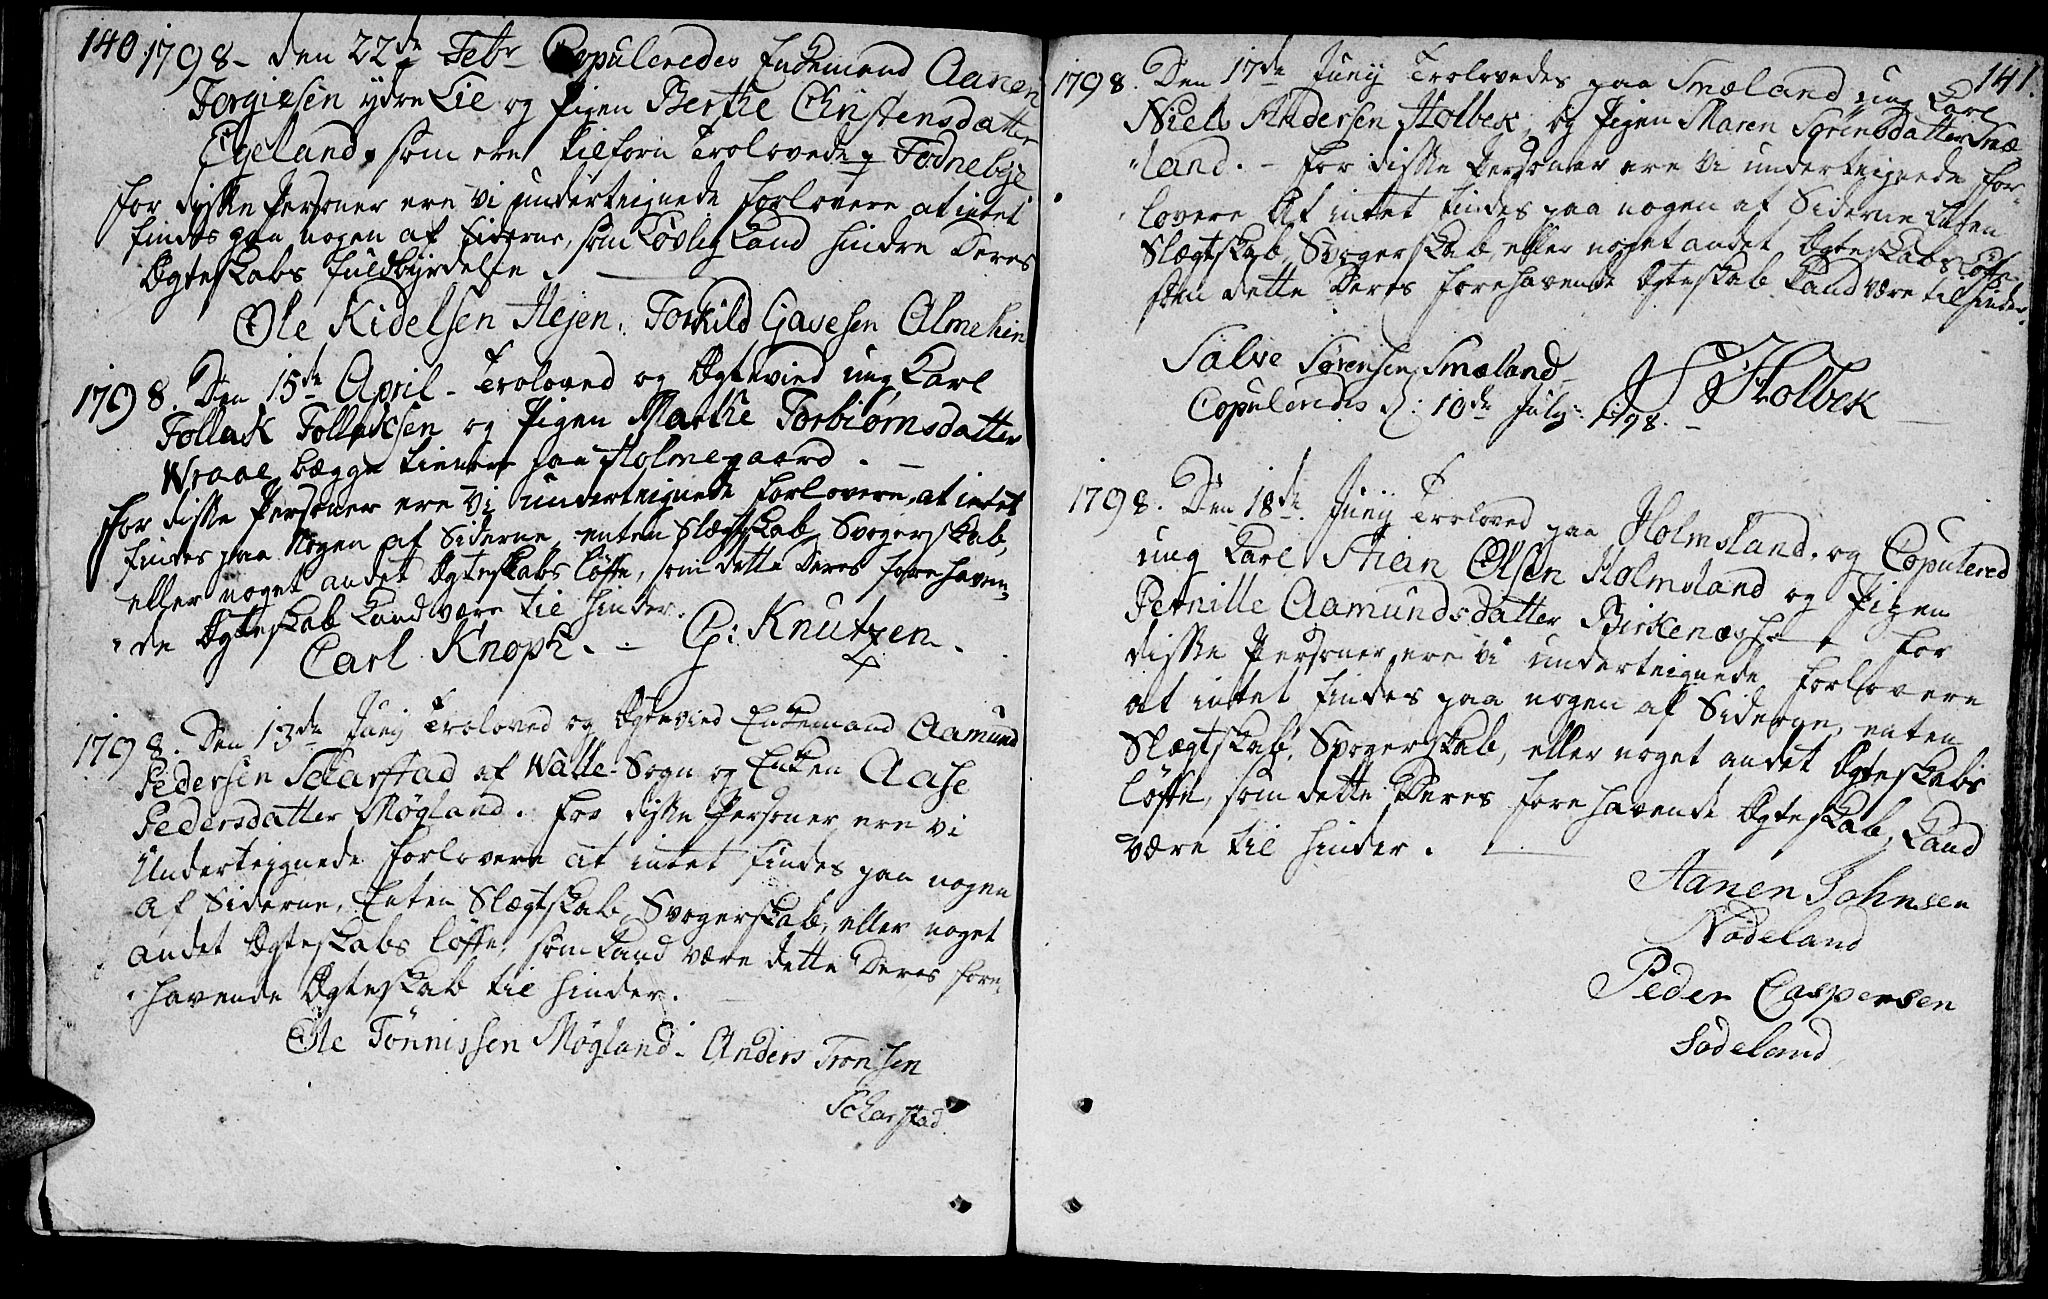 140. 1798 - Den 22de Febr Copuleredes Enkemand Aanen
Torgiesen ydre Lie og Pigen Berthe Christensdatter
Egeland, som ere tilforn Trolovede p Fodnebye
For disse Personer ere vi underteignede Forlovere at intet
findes paa nogen af Siderne, som Lovlig Kand hindre Deres
Ægteskabs Fuldbyrdelse.
Ole Kidelsen Hejen. Torkild Gavesen Almehin
1798. Den 15de April - Troloved og Ægtevied ung Karl
Tollak Tollaksen og Pigen Marthe Torbiørnsdatter
Wraae, begge tienere paa Holmegaard. -
For disse Personer ere Vi underteignede Forlovere, at intet
findes paa Nogen af Siderne, enten Slægtskab, Svogerskab,
eller noget andet Ægteskabs løfte, som dette Deres forehaven-
de Ægteskab Kand være til hinder.
Carl Knoph. - G: Knutzen.
1798. Den 13de Junij Troloved og Ægtevied Enkemand Aamund
Pedersen Scharstad af Walle-Sogn og Enken Aase
Pedersdatter Møgland. For disse Personer ere vi
Underteignede Forlovere at intet findes paa nogen
af Siderne, Enten Slægtskab, Svogerskab, eller noget
andet Ægteskabs løfte, som Kand være dette Deres fore-
havende Ægteskab til hinder.
Ole Tønnissen Møgland - Anders Tronsen
Scharstad
141.
1798. Den 17de Junij Trolovedes paa Smæland ung Karl
Niels Andersen Holbek, og Pigen Maren Sørensdatter Smæ
land. - For disse Personer ere Vi underteignede For-
lovere At intet findes paa nogen af Siderne Enten
Slægtskab, Svogerskab, eller noget andet Ægteskabs Løfte
som dette Deres forehavende Ægteskab Kand være til hinder.
Salve Sørensen Smæland - Holbek
Copuleredis d: 10de Julij 1798. -
1798. Den 18de Junij Troloved paa Holmsland. og Copulered
ung Karl Stien Olsen Holmsland og Pigen
Pernille Aamundsdatter Birkenæs For
disse Personer ere Vi underteignede Forlovere
at intet findes paa nogen af Siderne, enten
Slægtskab, Svogerskab, eller noget andet Ægteskabs
løfte, som dette Deres forehavende Ægteskab, Kand
være til hinder.
Aanen Johnsen
Nodeland
Peder Caspersen
Sodeland